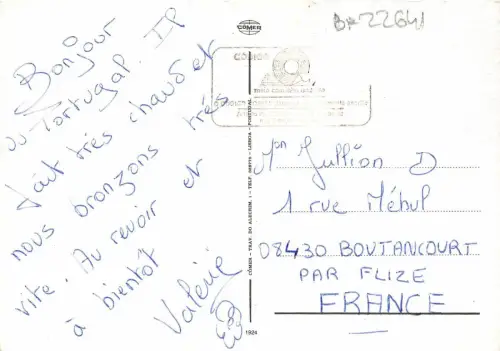 Bonjour
du Portugal. Il
fait très chaud et
nous bronzons très
vite. Au revoir et
à bientôt
Valérie
COMER
B*22641
CODIGO
COMER - TRAV. DO ALECRIM, - TELF. - LISBOA - PORTUGAL
1924
Mon Jullion D
1 rue Méhul
08430 BOUTANCOURT
PAR FLIZE
FRANCE